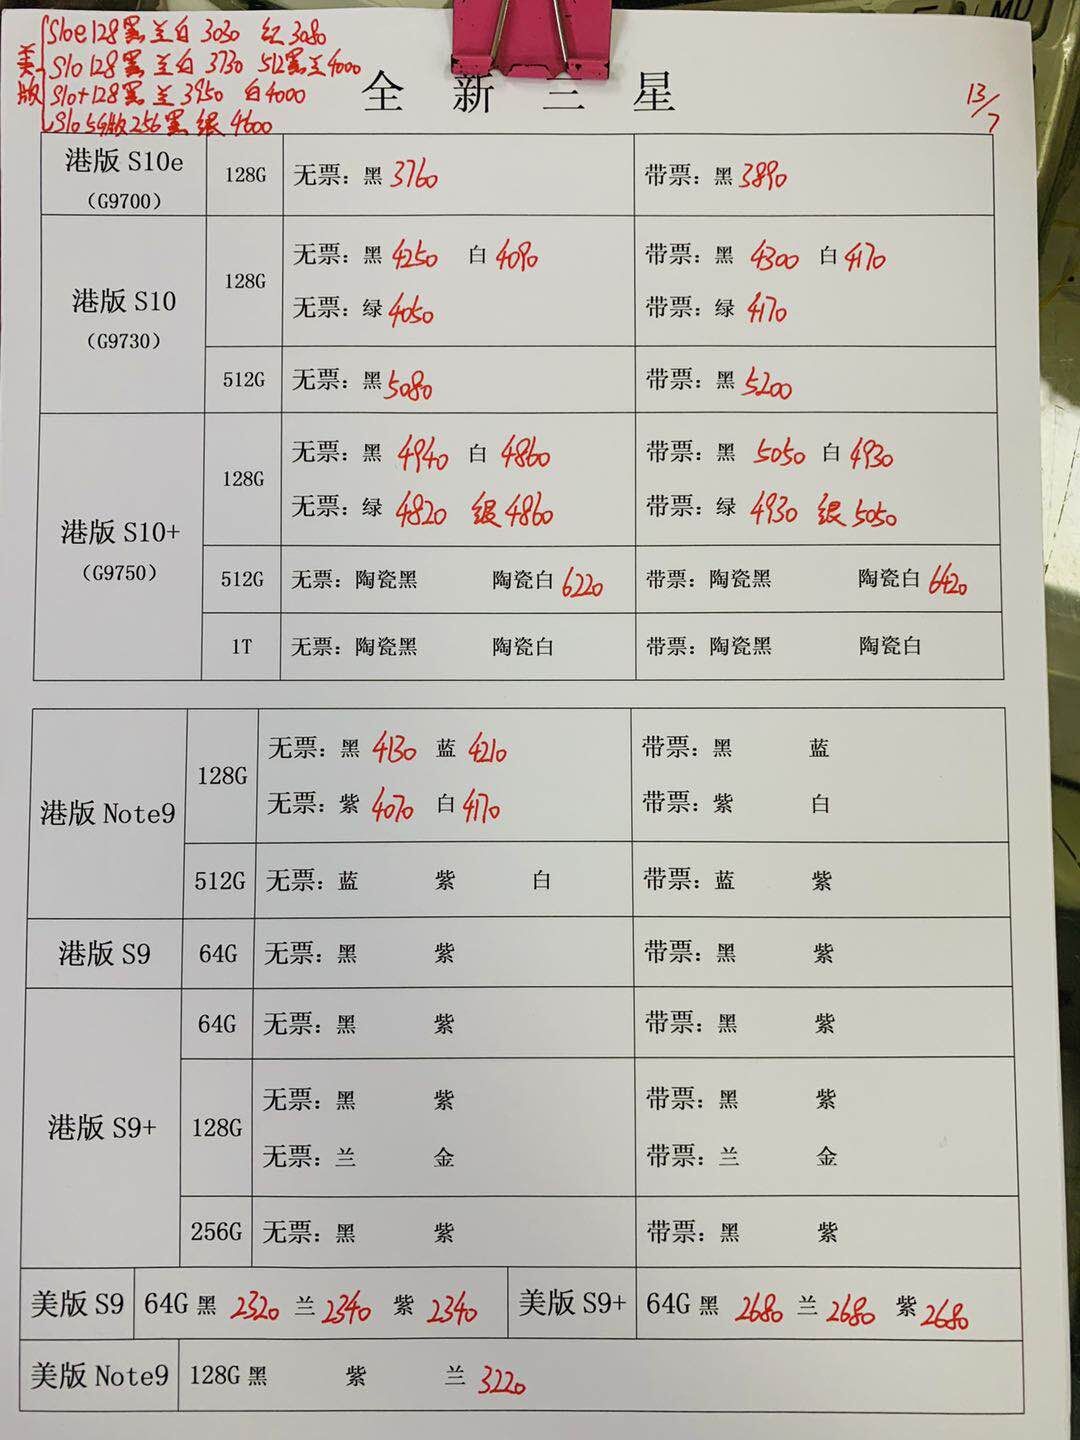 S10e 128黑兰白 3030 红3080
S10 128黑兰白 3730 512黑兰4000
S10+128黑兰3950 白4000
S10 5G版256黑银4600
美版
全新三星
13/7
港版 S10e
（G9700）
128G 无票：黑 3760 带票：黑 3890
港版 S10
（G9730）
128G 无票：黑 4250 白 4090 带票：黑 4300 白 4170
无票：绿 4050 带票：绿 4170
512G 无票：黑 5080 带票：黑 5200
港版 S10+
（G9750）
128G 无票：黑 4940 白 4860 带票：黑 5050 白 4930
无票：绿 4820 银 4860 带票：绿 4930 银 5050
512G 无票：陶瓷黑 陶瓷白 6220 带票：陶瓷黑 陶瓷白 6420
1T 无票：陶瓷黑 陶瓷白 带票：陶瓷黑 陶瓷白
港版 Note9
128G 无票：黑 4130 蓝 4210 带票：黑 蓝
无票：紫 4070 白 4170 带票：紫 白
512G 无票：蓝 紫 白 带票：蓝 紫
港版 S9 64G 无票：黑 紫 带票：黑 紫
港版 S9+
64G 无票：黑 紫 带票：黑 紫
128G 无票：黑 紫 带票：黑 紫
无票：兰 金 带票：兰 金
256G 无票：黑 紫 带票：黑 紫
美版 S9 64G 黑 2320 兰 2340 紫 2340 美版 S9+ 64G 黑 2680 兰 2680 紫 2680
美版 Note9 128G 黑 紫 兰 3220